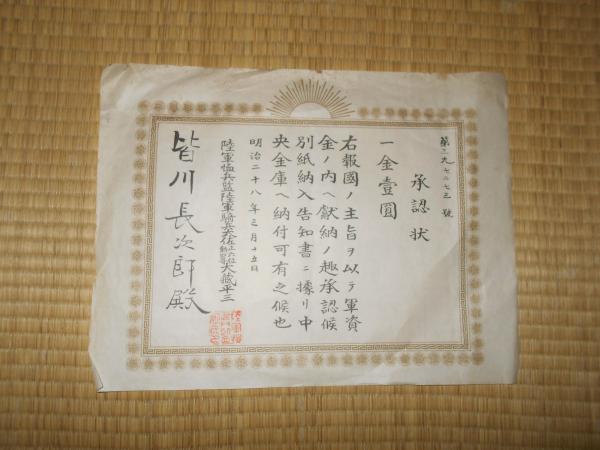 第二九七二七三號
承認状
一金壹圓
右報國ノ主旨ヲ以テ軍資
金ノ内ヘ獻納ノ趣承認候
別紙納入告知書ニ據リ中
央金庫ヘ納付可有之候也
明治二十八年三月十五日
陸軍恤兵監陸軍騎兵大佐正六位勲四等大藏平三
皆川長次郎殿